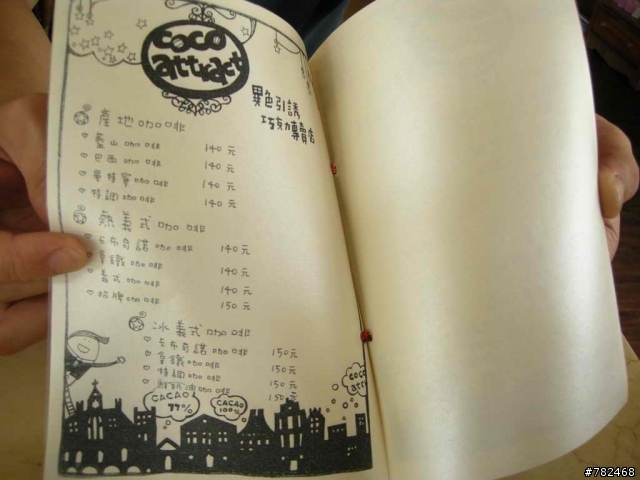 coco
attract
異色引誘
巧克力專賣店
產地咖啡
藍山咖啡 140元
巴西咖啡 140元
曼特寧咖啡 140元
特調咖啡 140元
熱義式咖啡
卡布奇諾咖啡 140元
拿鐵咖啡 140元
義式咖啡 140元
招牌咖啡 150元
冰義式咖啡
卡布奇諾咖啡 150元
拿鐵咖啡 150元
特調咖啡 150元
咖啡 150元
CACAO
99%
CACAO
100%
coco
attr
#782468